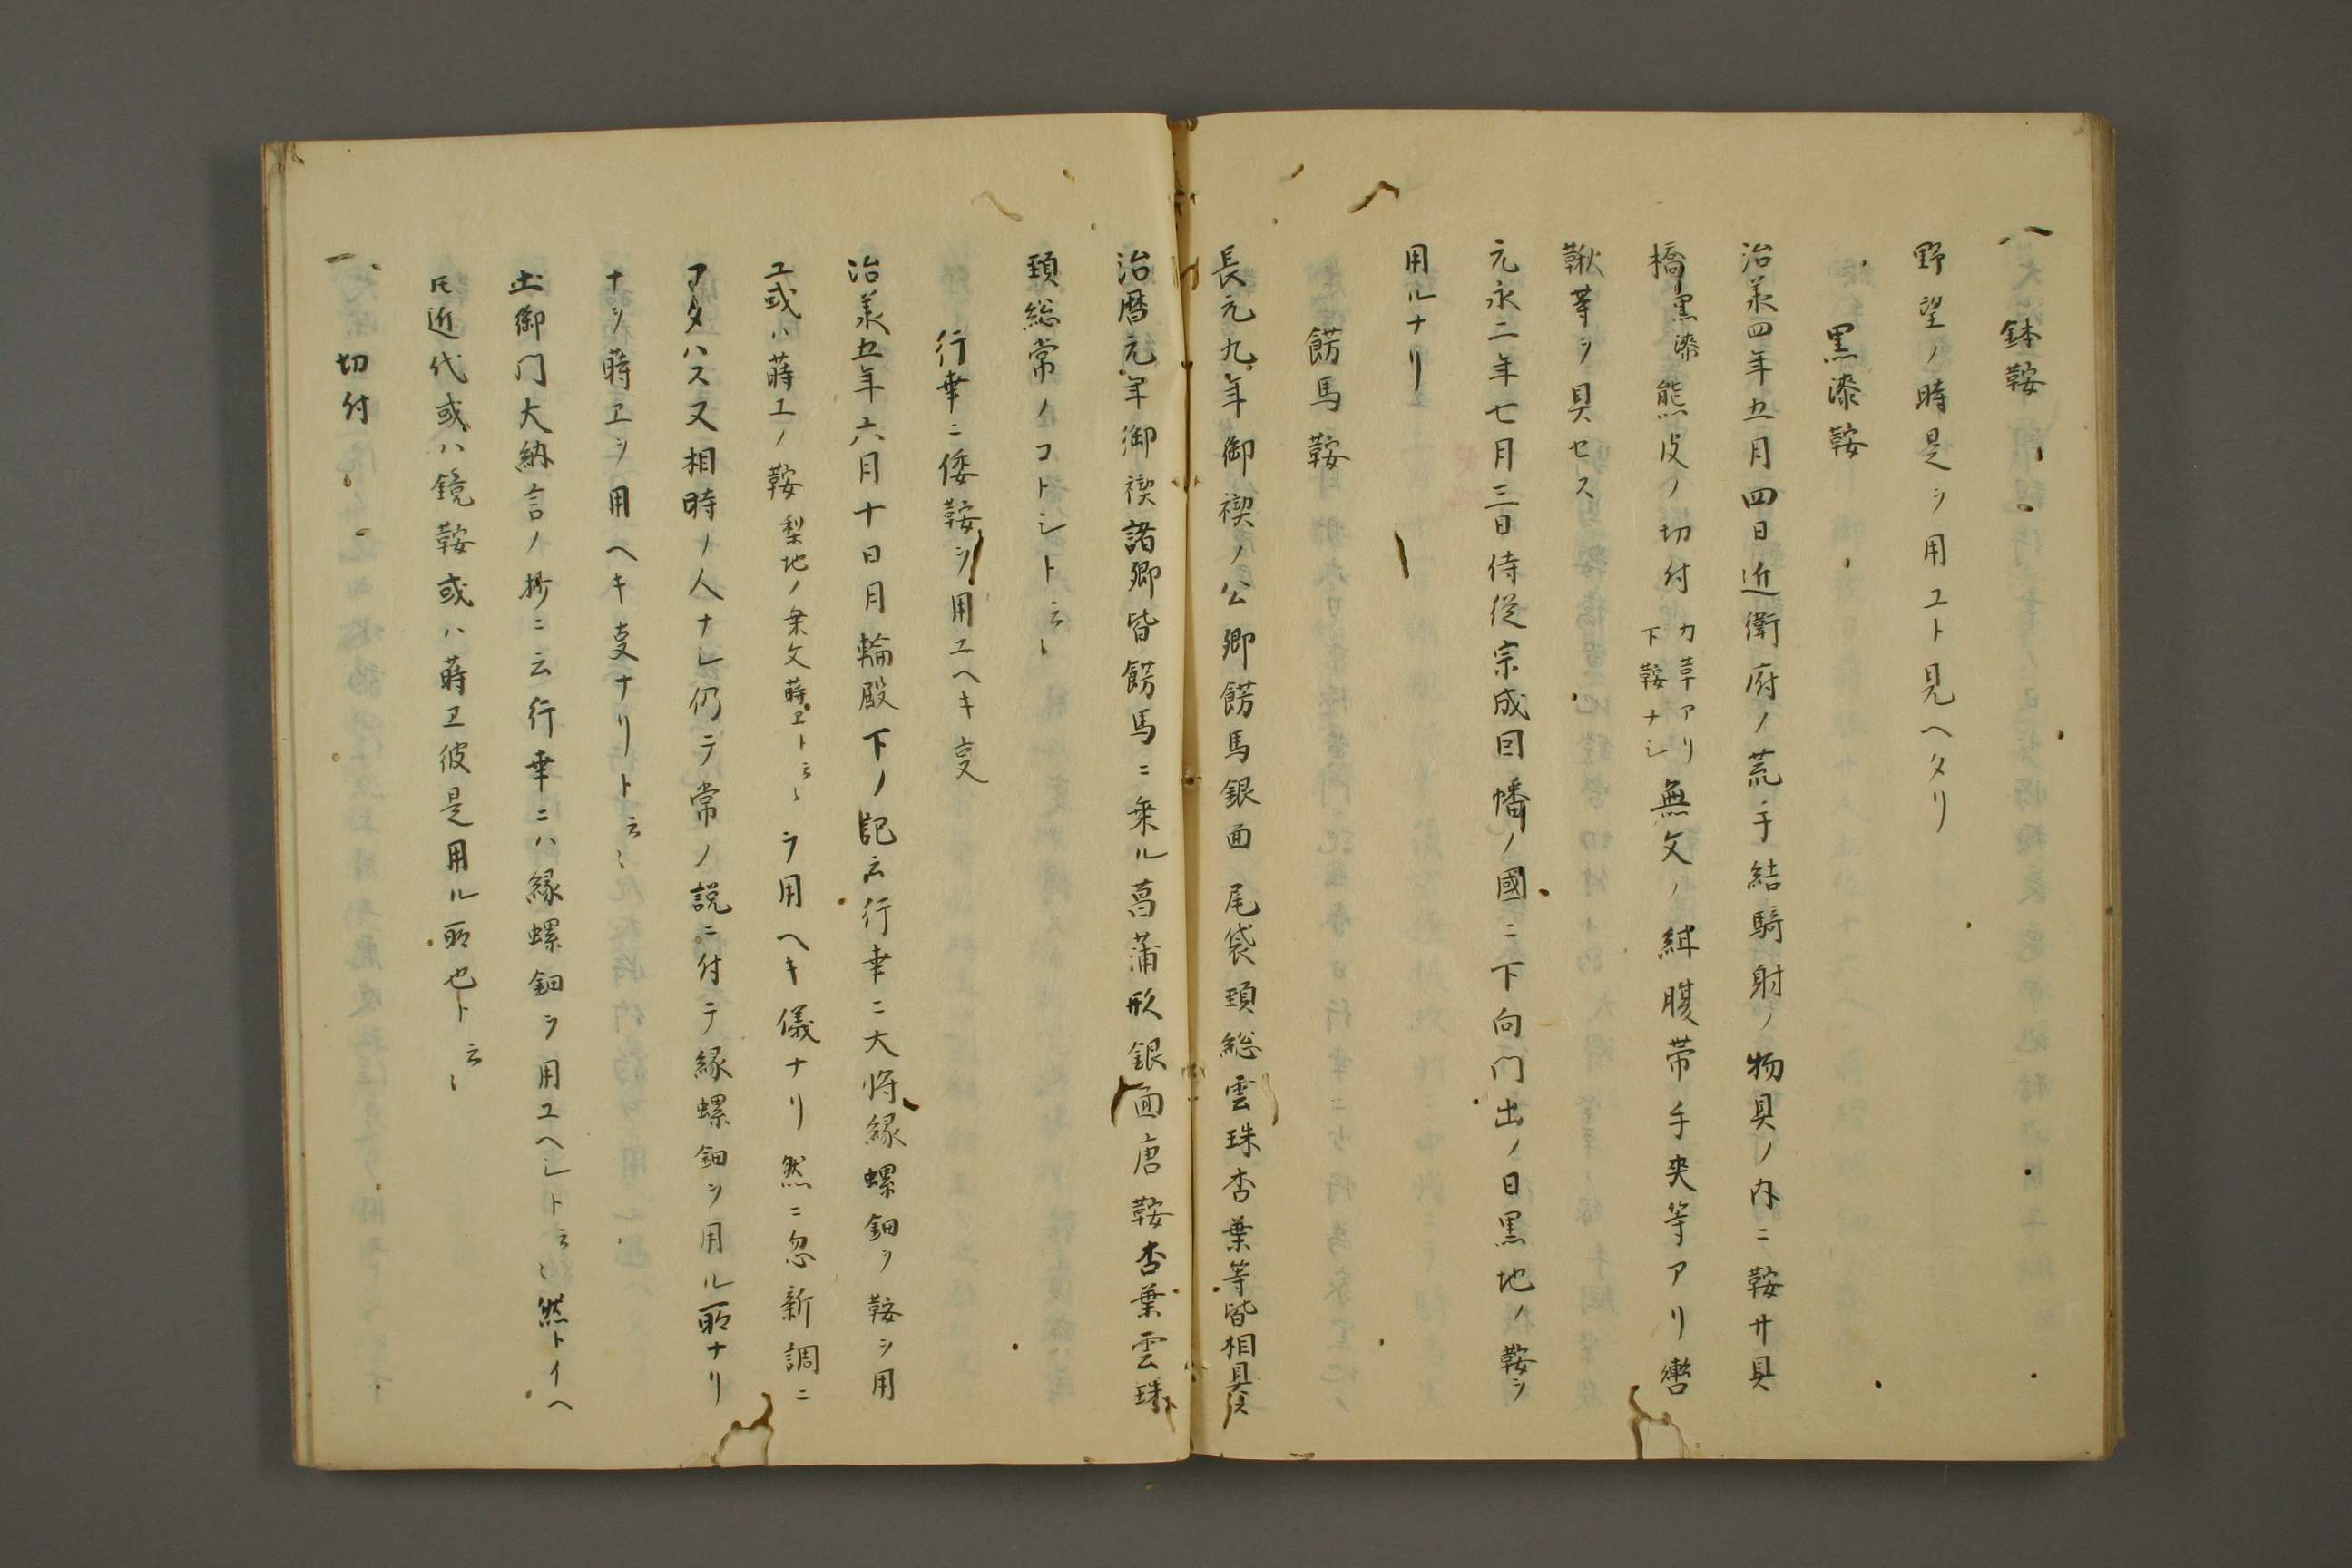 一 鉢鞍
野望ノ時是ヲ用ユト見ヘタリ
黒漆鞍
治承四年五月四日近衛府ノ荒手結騎射ノ物具ノ内ニ鞍サ具
橋黒漆熊皮ノ切付 力草アリ 下鞍ナシ 無文ノ 腹帯手夾等アリ轡
鞦等ヲ具セス
元永二年七月三日侍従宗成因幡ノ國ニ下向門出ノ日黒地ノ鞍ヲ
用ルナリ
餝馬鞍
長元九年御禊ノ公卿餝馬銀面尾袋頚総雲珠杏葉等皆相具ス
治暦元年御禊諸卿皆餝馬ニ乗ル菖蒲形銀面唐鞍杏葉雲珠
頚総常ノコトシト云〻
行幸ニ倭鞍ヲ用ユヘキ㕝
治承五年六月十日月輪殿下ノ記云行幸ニ大将縁螺鈿ノ鞍ヲ用
ユ或ハ蒔エノ鞍 梨地ノ朱文蒔ヱト云〻 ヲ用ヘキ儀ナリ然ニ忽新調ニ
アタハス又相時ノ人ナシ仍テ常ノ説ニ付テ縁螺鈿ヲ用ル所ナリ
ナシ蒔ヱヲ用ヘキ㕝ナリト云〻
土御門大納言ノ抄ニ云行幸ニハ縁螺鈿ヲ用ユヘシト云〻然トイヘ
𪜈近代或ハ鏡鞍或ハ蒔ヱ彼是用ル所也ト云〻
一 切付